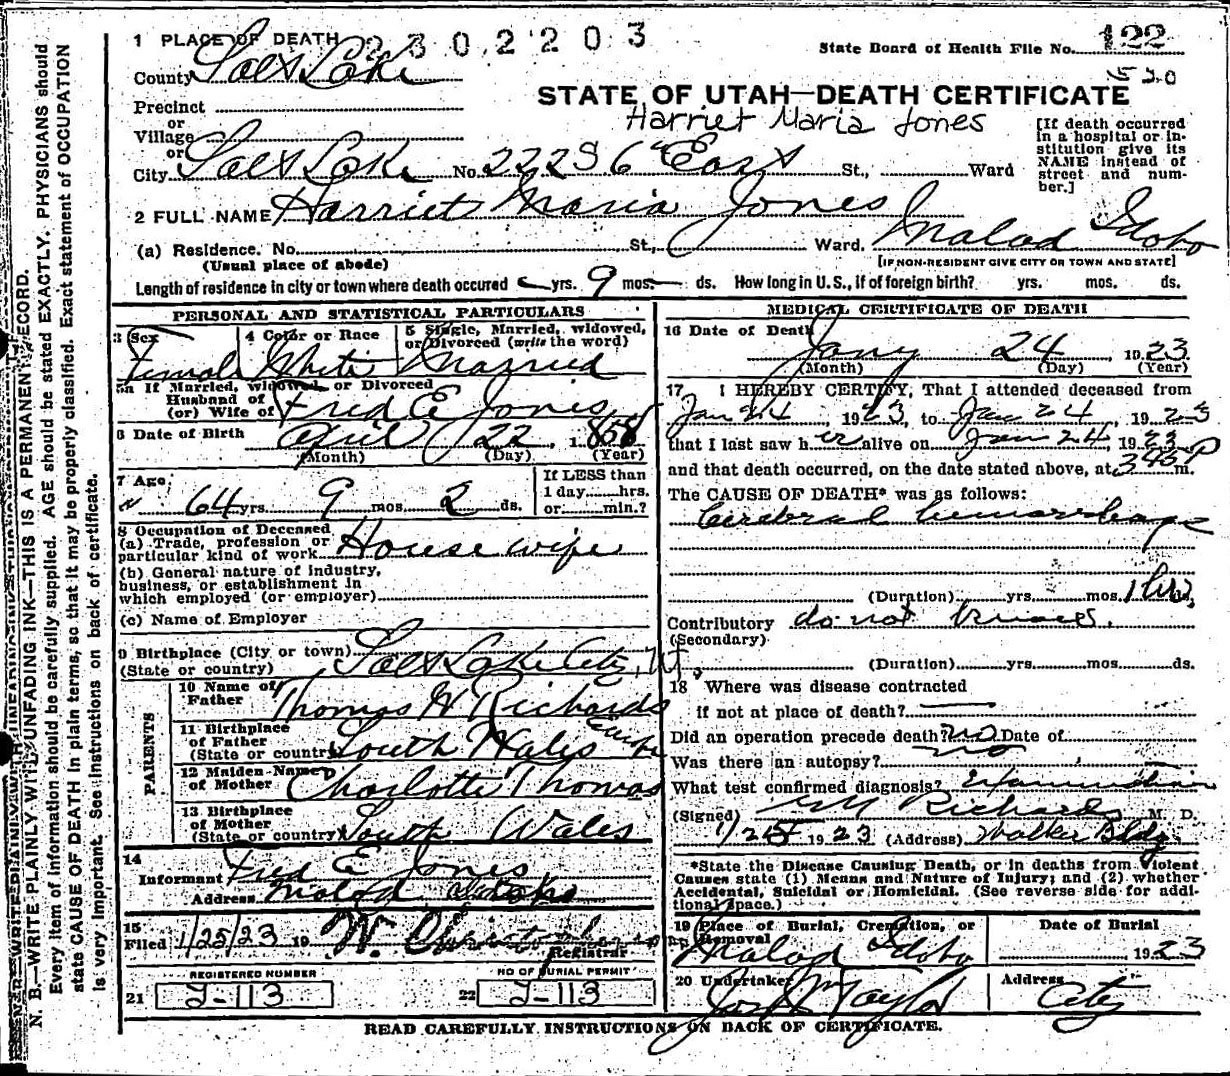 1 PLACE OF DEATH 2302203
State Board of Health File No. 122
County Salt Lake
530
STATE OF UTAH—DEATH CERTIFICATE
Precinct
or
Village
or
Harriet Maria Jones
[If death occurred in a hospital or institution give its NAME instead of street and number.]
City Salt Lake No. 2223 6 East St., Ward
2 FULL NAME Harriet Maria Jones
(a) Residence. No. St., Ward. Malad Idaho
(Usual place of abode)
[IF NON-RESIDENT GIVE CITY OR TOWN AND STATE]
Length of residence in city or town where death occured yrs. 9 mos. ds. How long in U.S., if of foreign birth? yrs. mos. ds.
PERSONAL AND STATISTICAL PARTICULARS
3 Sex Female
4 Color or Race White
5 Single, Married, widowed, or Divorced (write the word) Married
5a If Married, widowed, or Divorced
Husband of
(or) Wife of Fred E Jones
6 Date of Birth April 22, 1858
(Month) (Day) (Year)
7 Age 64 yrs. 9 mos. 2 ds.
If LESS than
1 day......hrs.
or......min.?
8 Occupation of Deceased
(a) Trade, profession or
particular kind of work House wife
(b) General nature of industry,
business, or establishment in
which employed (or employer)
(c) Name of Employer
9 Birthplace (City or town)
(State or country) Salt Lake City, Ut,
PARENTS
10 Name of
Father Thomas W Richards
11 Birthplace
of Father
(State or country) South Wales
12 Maiden Name
of Mother Charlotte Thomas
13 Birthplace
of Mother
(State or country) South Wales
14
Informant Fred E Jones
Address Malad Idaho
15
Filed 1/25/23 19 W. Christopherson
Registrar
REGISTERED NUMBER
21 J-113
NO OF BURIAL PERMIT
22 J-113
MEDICAL CERTIFICATE OF DEATH
16 Date of Death
Jany 24, 1923
(Month) (Day) (Year)
17 I HEREBY CERTIFY, That I attended deceased from
Jan 24, 1923, to Jan 24, 1923
that I last saw her alive on Jan 24, 1923
and that death occurred, on the date stated above, at 345 P m.
The CAUSE OF DEATH* was as follows:
Cerebral hemorrhage
(Duration) yrs. mos. 1 hr,
Contributory do not know.
(Secondary)
(Duration) yrs. mos. ds.
18 Where was disease contracted
if not at place of death?
Did an operation precede death? no Date of
Was there an autopsy? no
What test confirmed diagnosis? Examination
(Signed) Richards M. D.
1/25 1923 (Address) Walker Bldg
*State the Disease Causing Death, or in deaths from Violent
Causes state (1) Means and Nature of Injury; and (2) whether
Accidental, Suicidal or Homicidal. (See reverse side for addi-
tional space.)
19 Place of Burial, Cremation, or
Removal
Malad Idaho
Date of Burial
1923
20 Undertaker Jos Wm Taylor
Address City
READ CAREFULLY INSTRUCTIONS ON BACK OF CERTIFICATE.
N. B.—WRITE PLAINLY WITH UNFADING INK—THIS IS A PERMANENT RECORD.
Every item of information should be carefully supplied. AGE should be stated EXACTLY. PHYSICIANS should
state CAUSE OF DEATH in plain terms, so that it may be properly classified. Exact statement of OCCUPATION
is very important. See instructions on back of certificate.